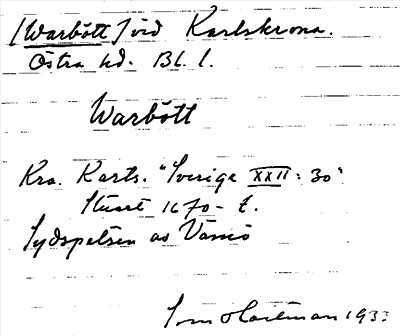 [Warbött] vid Karlskrona.
Östra hd. Bl. l.
Warbött
Kra. Karts. "Sverige XXII: 30"
Stuart 1670-t.
Sydspetsen av Vämö
1933